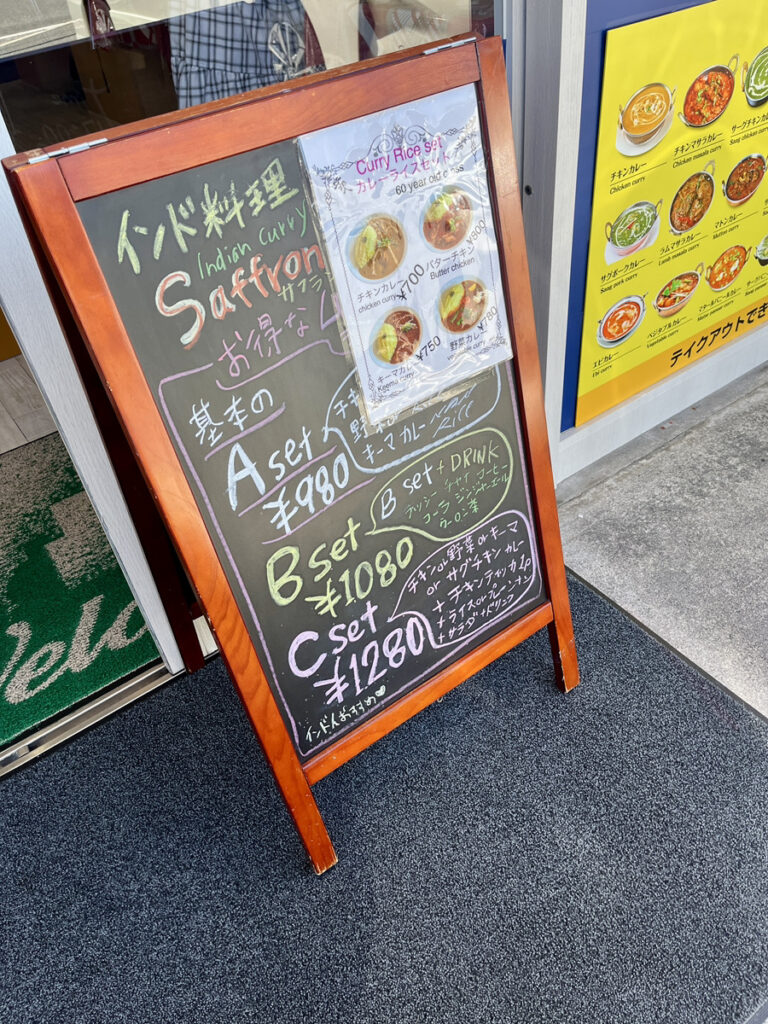 インド料理
Indian Curry
Saffron
サフラ
お得な
Curry Rice set
カレーライスセット
60 year old
チキンカレー
chicken curry
¥700
バターチキン
Butter chicken
¥800
キーマカレ
Keema curry
¥750
野菜カレー
vegetable curry
¥780
基本の
A set
¥980
キーマカレー
NAN
RICE
B set
¥1080
B set + DRINK
ラッシー チャイ コーヒー
コーラ ジンジャエール
ウーロン茶
C set
¥1280
チキン or 野菜 or キーマ
or サグチキン カレー
+ チキンティッカ1p
+ ライス or プレーンナン
+ サラダ + ドリンク
インド人おすすめ
Welco
チキンカレー
Chicken curry
チキンマサラカレー
Chicken masala curry
サーグチキンカ
Saag chicken cur
サグポークカレー
Saag pork curry
ラムマサラカレー
Lamb masala curry
マトンカレー
Mutton curry
エビカレー
Ebi curry
ベジタブルカレー
Vegetable curry
マターパニールカレー
Matar paneer curry
テイクアウトでき